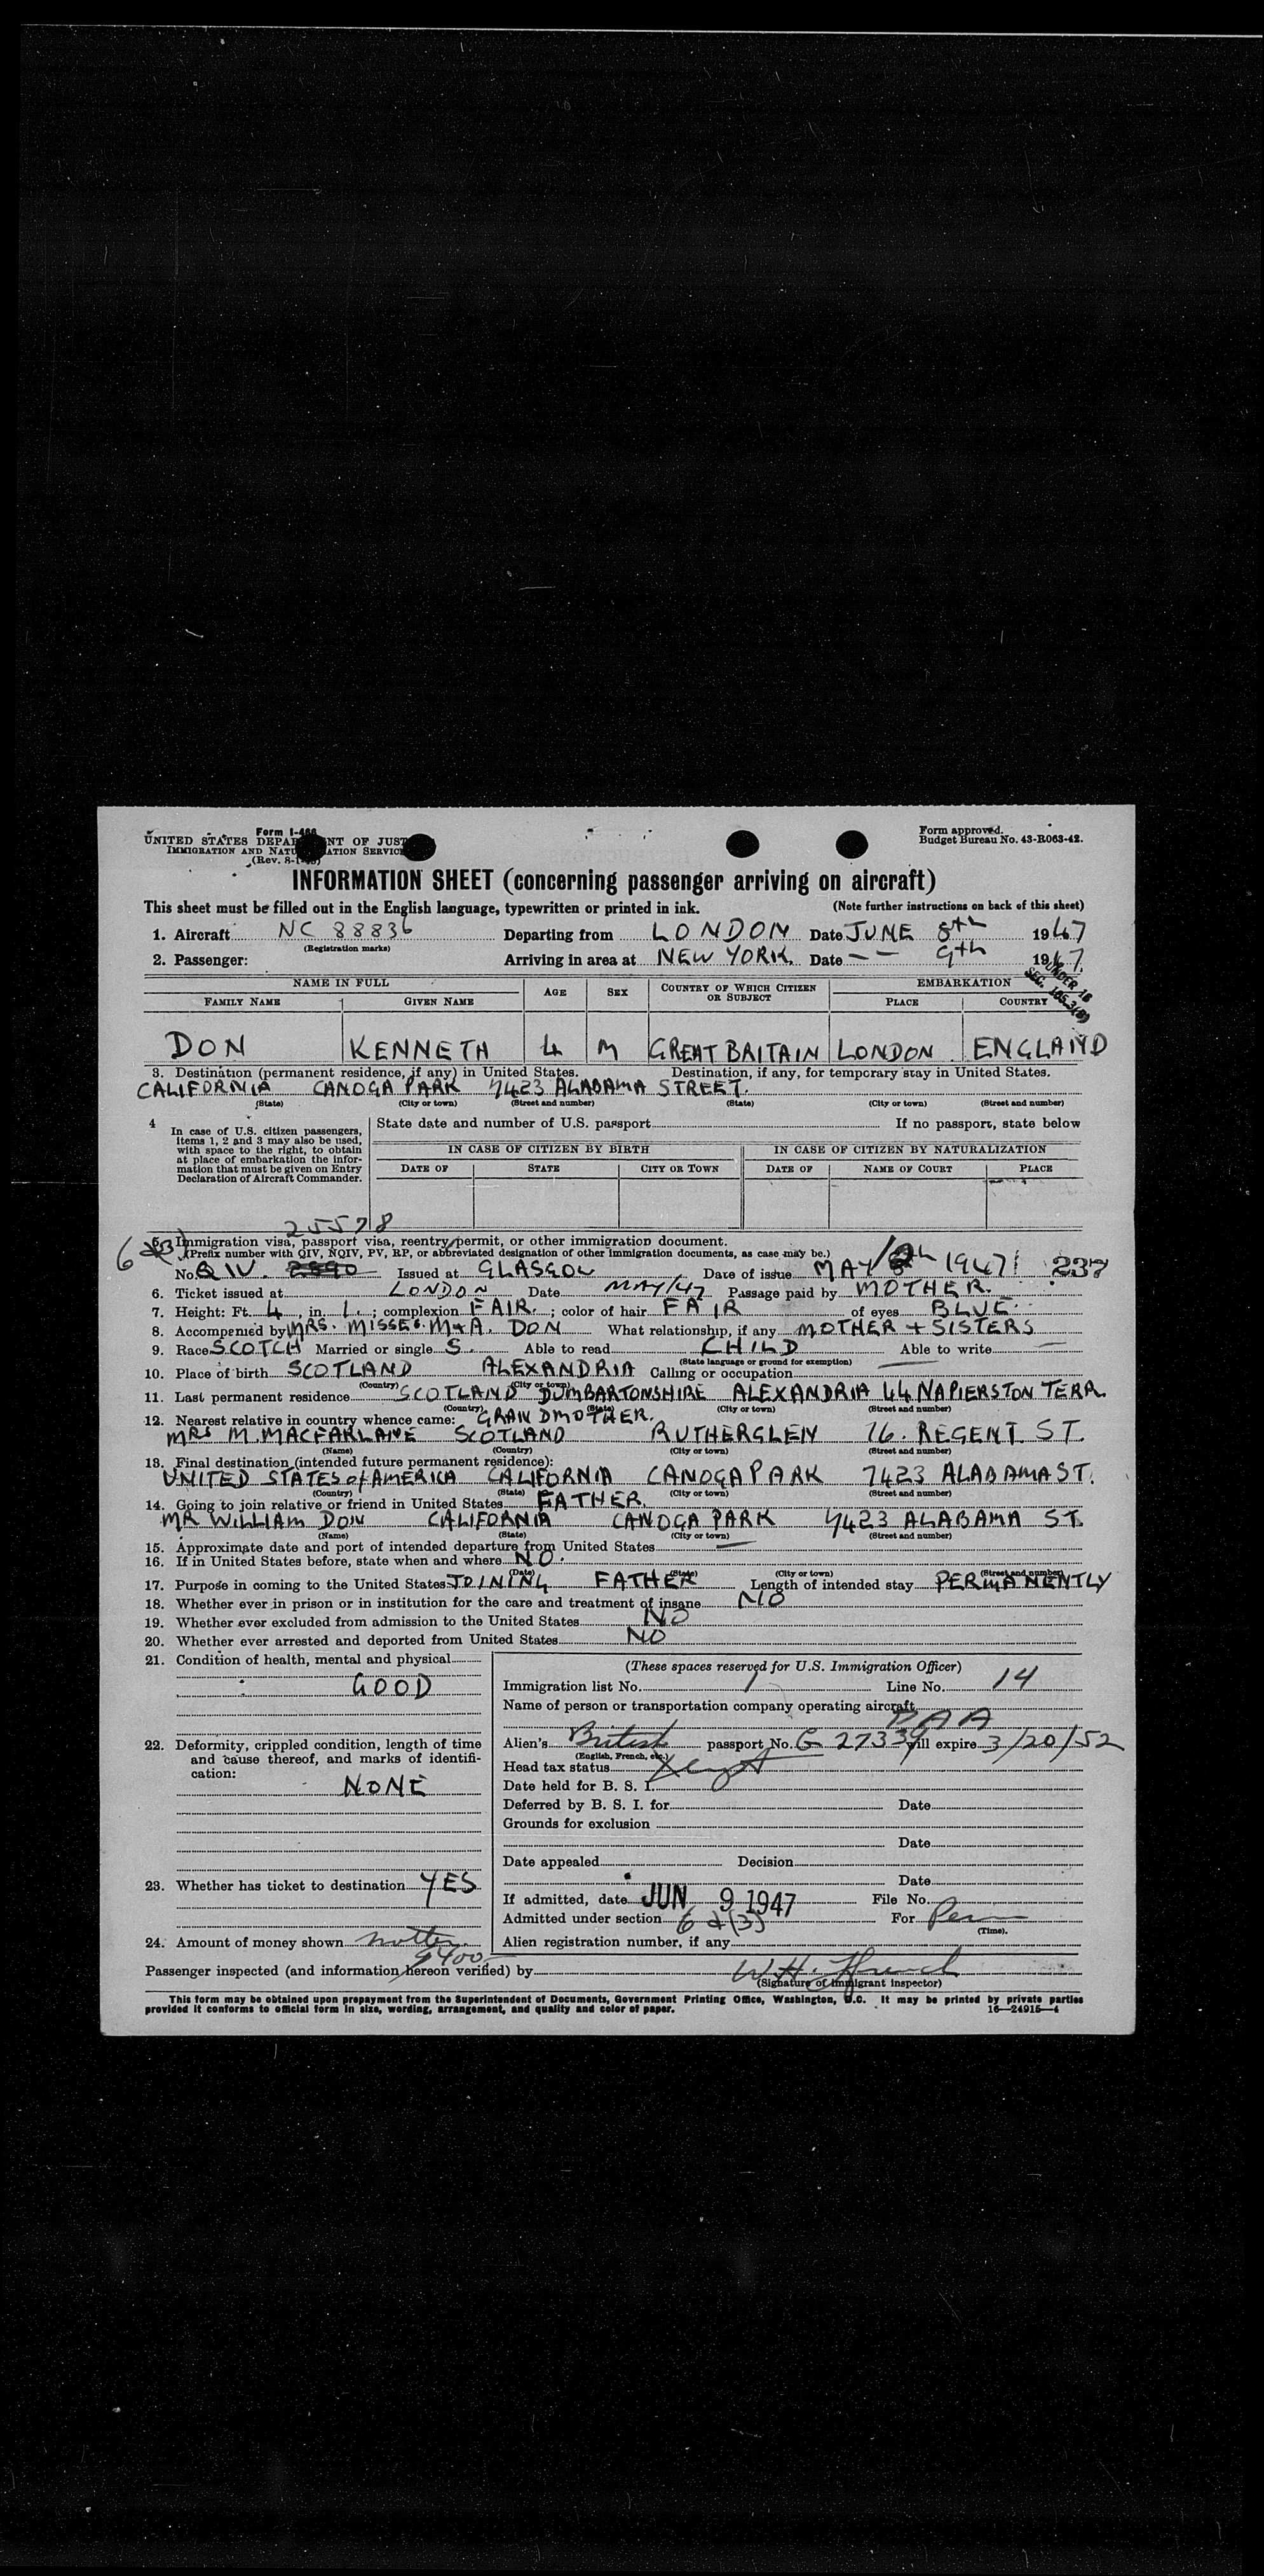 Form I-466
UNITED STATES DEPARTMENT OF JUSTICE
IMMIGRATION AND NATURALIZATION SERVICE
(Rev. 8-1-45)
Form approved.
Budget Bureau No. 43-R063-42.
INFORMATION SHEET (concerning passenger arriving on aircraft)
This sheet must be filled out in the English language, typewritten or printed in ink. (Note further instructions on back of this sheet)
1. Aircraft NC 88836 Departing from LONDON Date JUNE 8th 1947
(Registration marks)
2. Passenger: Arriving in area at NEW YORK. Date — — 9th 1947.
UNDER 16
SEC. 105.3(B)
NAME IN FULL AGE SEX COUNTRY OF WHICH CITIZEN OR SUBJECT EMBARKATION
FAMILY NAME GIVEN NAME PLACE COUNTRY
DON KENNETH 4 M GREAT BRITAIN LONDON ENGLAND
3. Destination (permanent residence, if any) in United States. Destination, if any, for temporary stay in United States.
CALIFORNIA CANOGA PARK 7423 ALABAMA STREET.
(State) (City or town) (Street and number) (State) (City or town) (Street and number)
4 In case of U.S. citizen passengers, items 1, 2 and 3 may also be used, with space to the right, to obtain at place of embarkation the information that must be given on Entry Declaration of Aircraft Commander.
State date and number of U.S. passport If no passport, state below
IN CASE OF CITIZEN BY BIRTH IN CASE OF CITIZEN BY NATURALIZATION
DATE OF STATE CITY OR TOWN DATE OF NAME OF COURT PLACE
25578
6 d(3)
5. Immigration visa, passport visa, reentry permit, or other immigration document.
(Prefix number with QIV, NQIV, PV, RP, or abbreviated designation of other immigration documents, as case may be.)
No. QIV. 2890 Issued at GLASGOW Date of issue MAY 1947 237
6. Ticket issued at LONDON Date MAY/47 Passage paid by MOTHER.
7. Height: Ft. 4 in. 1. ; complexion FAIR. ; color of hair FAIR of eyes BLUE.
8. Accompanied by MRS. MISSES. M+A. DON What relationship, if any MOTHER + SISTERS
9. Race SCOTCH Married or single S. Able to read CHILD Able to write —
(State language or ground for exemption)
10. Place of birth SCOTLAND ALEXANDRIA Calling or occupation —
(Country) (City or town)
11. Last permanent residence SCOTLAND DUMBARTONSHIRE ALEXANDRIA 44 NAPIERSTON TERR.
(Country) (State) (City or town) (Street and number)
12. Nearest relative in country whence came: GRANDMOTHER.
MRS M. MACFARLANE SCOTLAND RUTHERGLEN 76. REGENT ST.
(Name) (Country) (City or town) (Street and number)
13. Final destination (intended future permanent residence):
UNITED STATES of AMERICA CALIFORNIA CANOGA PARK 7423 ALABAMA ST.
(Country) (State) (City or town) (Street and number)
14. Going to join relative or friend in United States FATHER.
MR WILLIAM DON CALIFORNIA CANOGA PARK 7423 ALABAMA ST.
(Name) (State) (City or town) (Street and number)
15. Approximate date and port of intended departure from United States —
16. If in United States before, state when and where NO.
(Date) (State) (City or town) (Street and number)
17. Purpose in coming to the United States JOINING FATHER Length of intended stay PERMANENTLY
18. Whether ever in prison or in institution for the care and treatment of insane NO
19. Whether ever excluded from admission to the United States NO
20. Whether ever arrested and deported from United States NO
21. Condition of health, mental and physical
GOOD
22. Deformity, crippled condition, length of time and cause thereof, and marks of identification:
NONE
23. Whether has ticket to destination YES
24. Amount of money shown mother $400
(These spaces reserved for U.S. Immigration Officer)
Immigration list No. 1 Line No. 14
Name of person or transportation company operating aircraft
PAA
Alien's British passport No. G 27339 will expire 3/20/52
(English, French, etc.)
Head tax status
Date held for B. S. I.
Deferred by B. S. I. for Date
Grounds for exclusion
Date
Date appealed Decision
Date
If admitted, date JUN 9 1947 File No.
Admitted under section 6 d(3) For Perm
(Time).
Alien registration number, if any
Passenger inspected (and information hereon verified) by
(Signature of immigrant inspector)
This form may be obtained upon prepayment from the Superintendent of Documents, Government Printing Office, Washington, D.C. It may be printed by private parties
provided it conforms to official form in size, wording, arrangement, and quality and color of paper. 16—24915-4